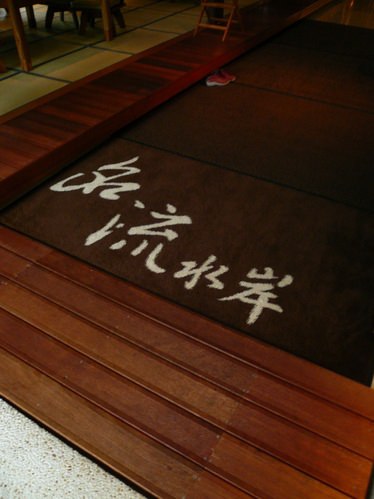 名流水岸